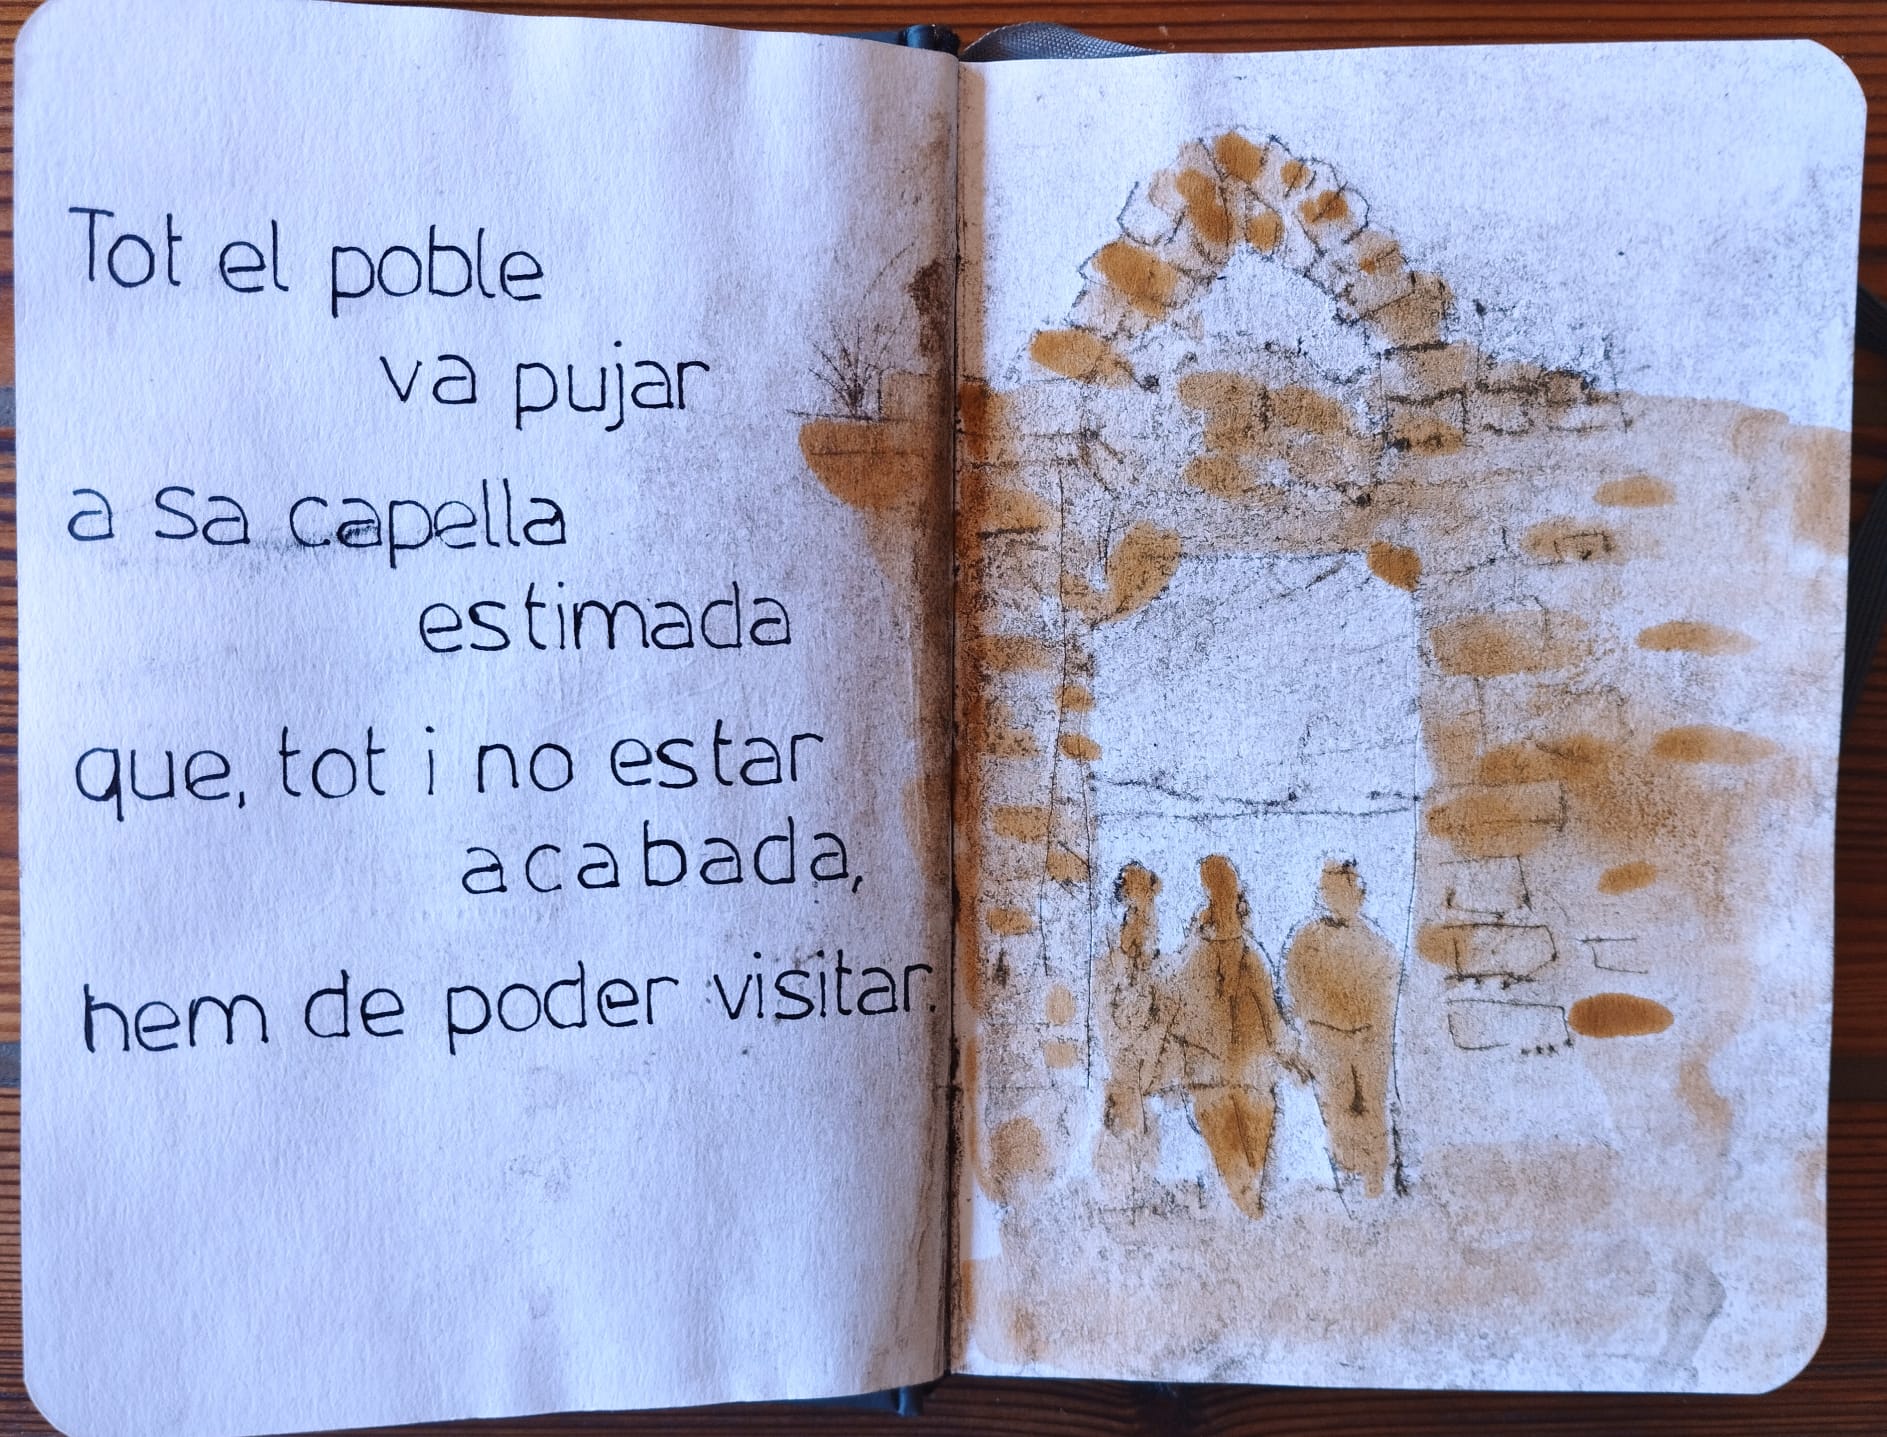 Tot el poble
va pujar
a sa capella
estimada
que, tot i no estar
acabada,
hem de poder visitar.